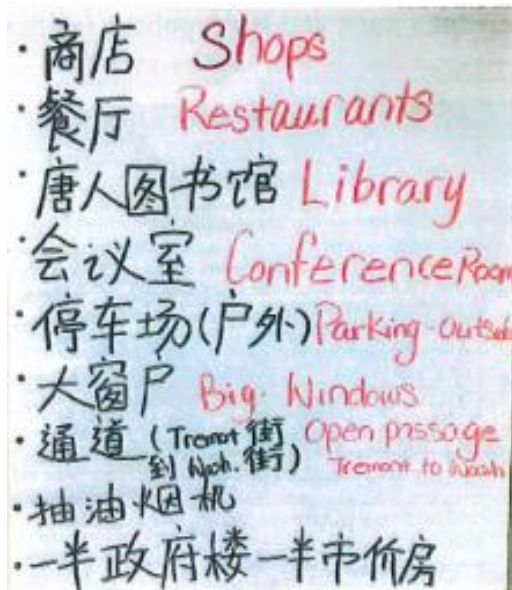 · 商店 Shops
· 餐厅 Restaurants
· 唐人图书馆 Library
· 会议室 Conference Room
· 停车场(户外) Parking - Outside
· 大窗户 Big Windows
· 通道 (Tremont 街 Open passage
到 Wash. 街) Tremont to Wash
· 抽油烟机
· 一半政府楼一半市价房